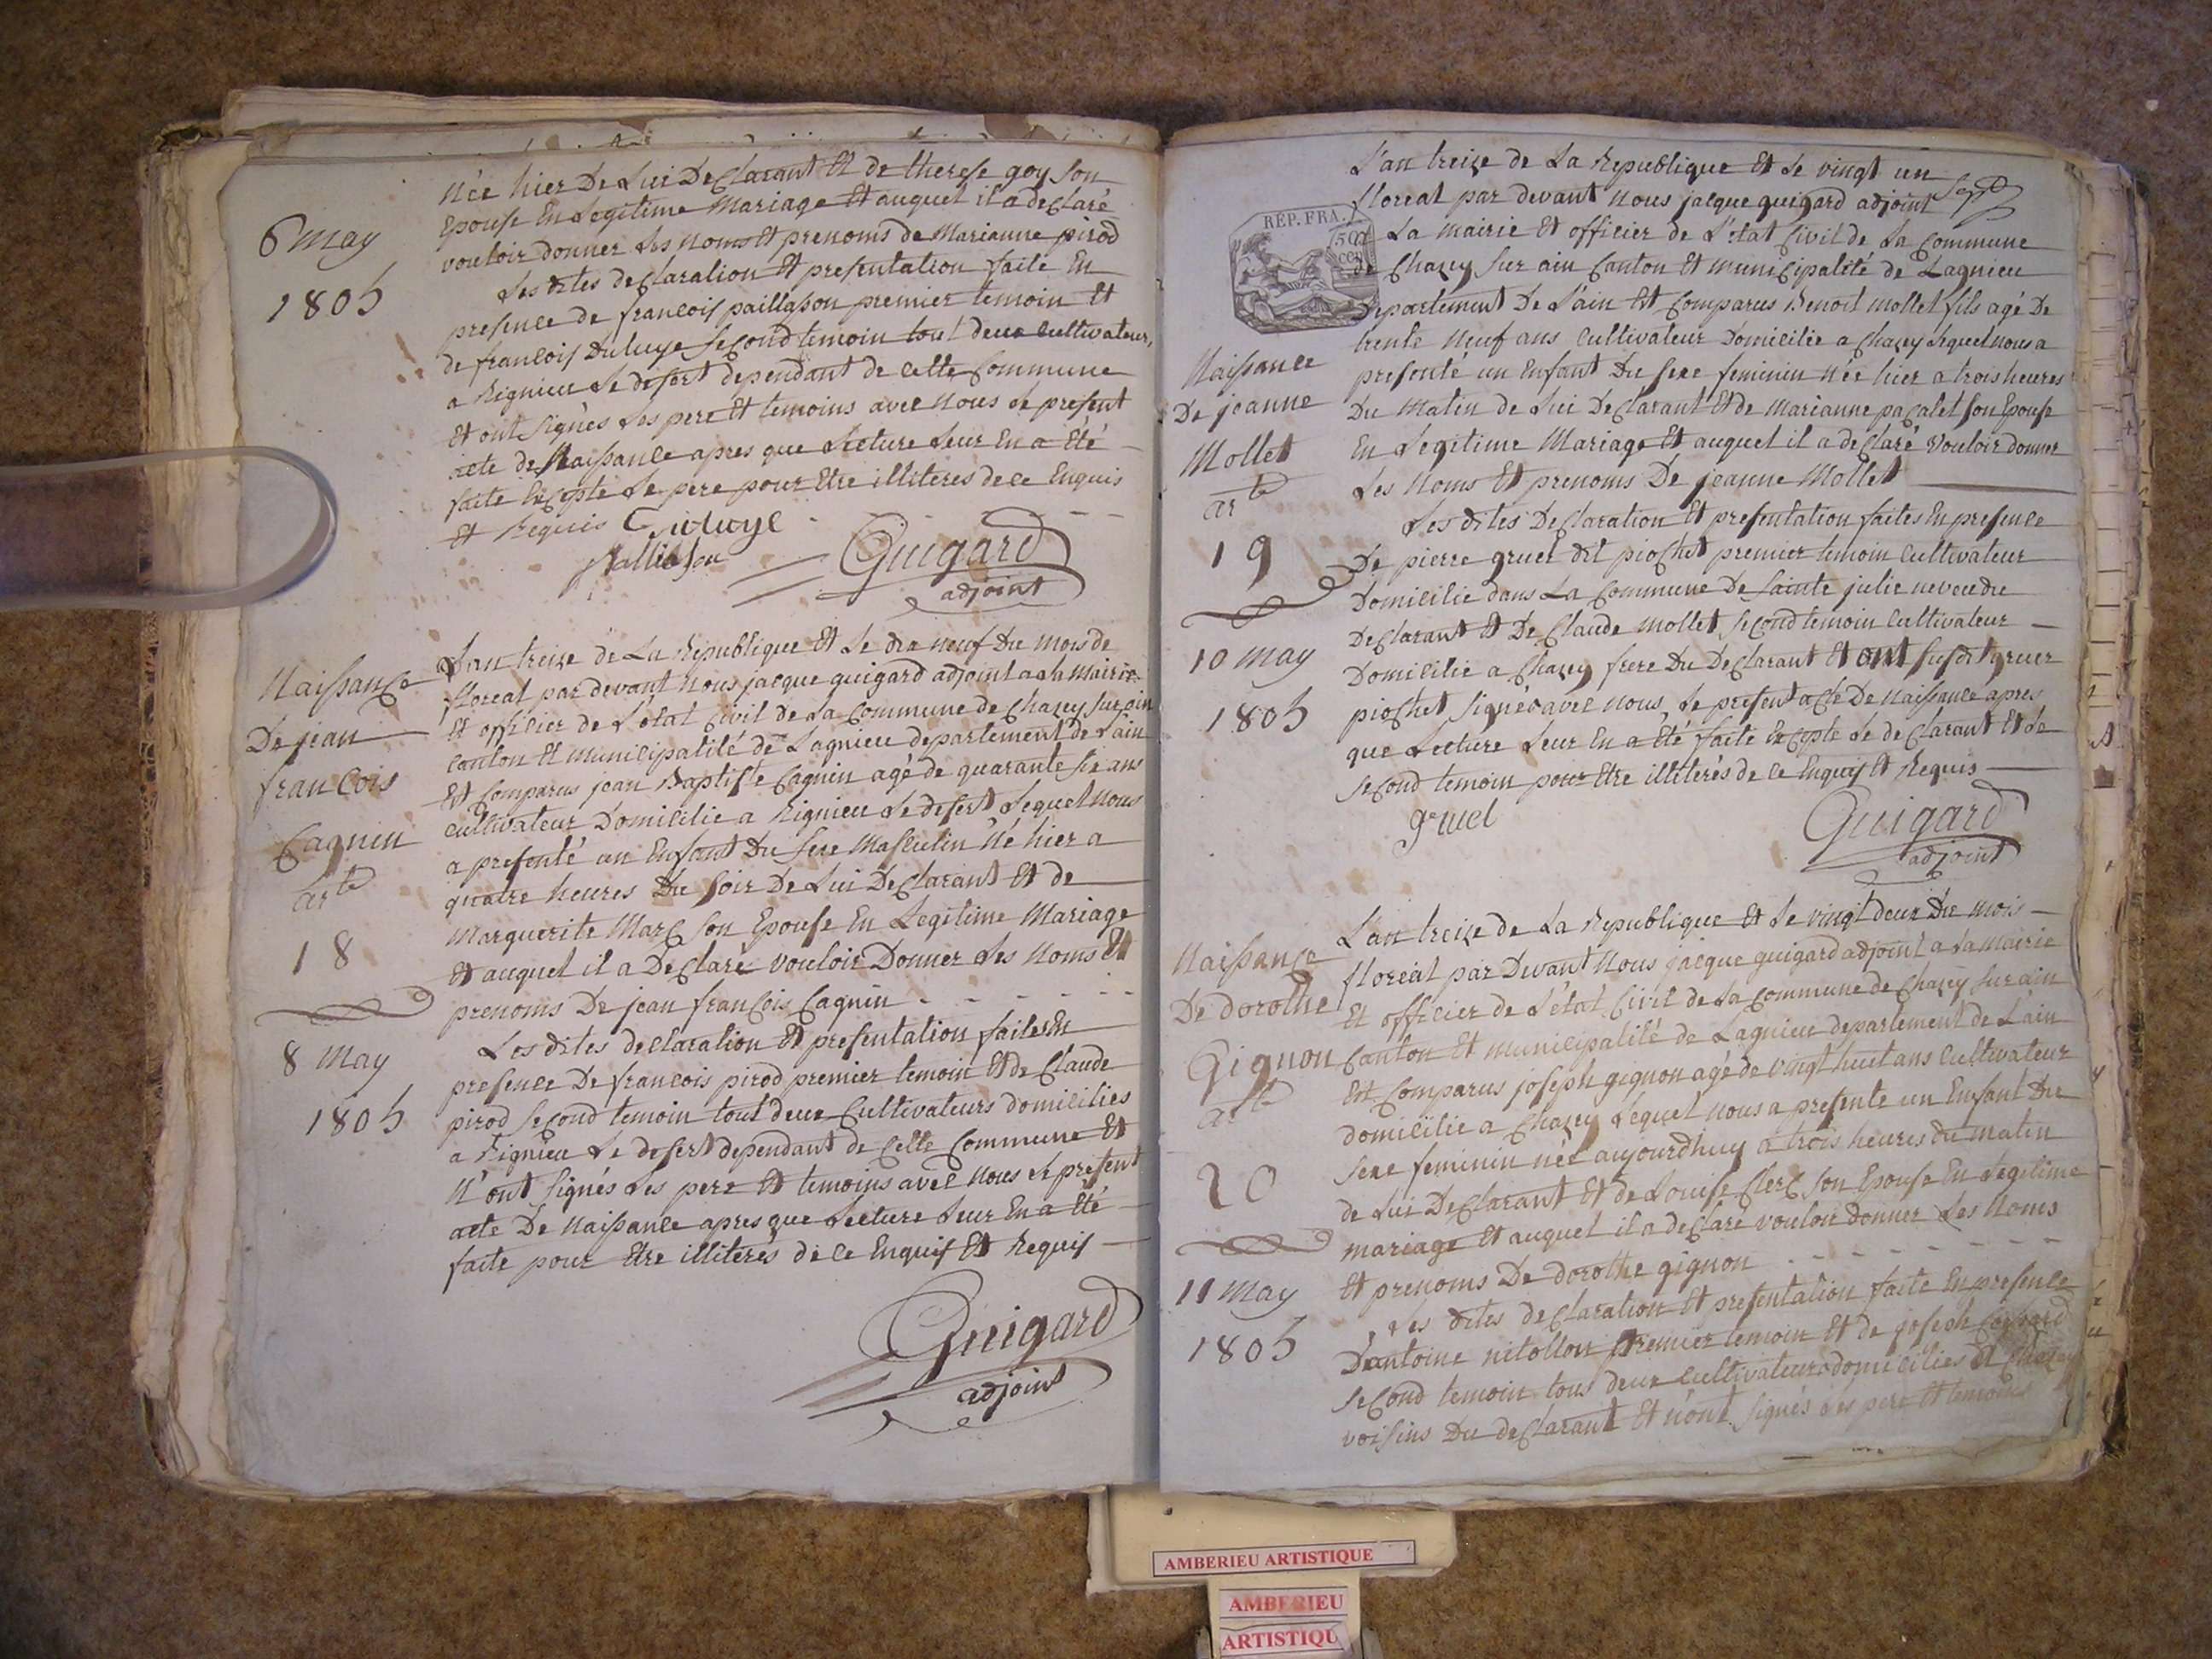 6 may
1805
née hier De Lui Declarant Et de therese goy son
Epouse En Legitime Mariage Et auquel il a declaré
vouloir donner Les noms Et prenoms de Marianne pirod
Les dites declaration Et presentation faite En
presence de francois paillason premier temoin Et
de francois duluye second temoin tout deux cultivateurs
a Rignieu Le desert dependant de cette Commune
Et ont signés Les pere Et temoins avec nous Le present
acte de Naissance apres que Lecture Leur En a Été
faite Excepte Le pere pour Etre illiteres de ce Enquis
Et Requis
Guigard
adjoint
Naissance
De jean
francois
Cagnin
art
18
8 may
1805
L'an treize de La Republique Et Le dix neuf Du mois de
floreal par devant Nous jacque guigard adjoint a La mairie
Et officier de L'etat Civil de La Commune de Chazey sur ain
canton Et municipalité de Lagnieu departement de L'ain
Est Comparus jean Baptiste Cagnin agé de quarante six ans
cultivateur Domicilie a Rignieu Le desert Lequel nous
a presenté un Enfant Du sexe Masculin Né hier a
quatre heures Du soir De Lui Declarant Et de
Marguerite Marc son Epouse En Legitime Mariage
Et auquel il a Declaré vouloir Donner Les Noms Et
prenoms De jean francois Cagnin
Les dites declaration Et presentation faites En
presence De francois pirod premier temoin Et de Claude
pirod second temoin tout deux Cultivateurs domicilies
a Rignieu Le desert dependant de Cette Commune Et
N'ont signés Les pere Et temoins avec nous Le present
acte De Naissance apres que Lecture Leur En a Eté
faite pour Etre illiterés de ce Enquis Et Requis
Guigard
adjoint
REP. FRA.
Naissance
De jeanne
Mollet
art
19
10 may
1805
L'an treize de La Republique Et Le vingt un
floreal par devant nous jacque guigard adjoint
La mairie Et officier de L'etat Civil de La Commune
de Chazey sur ain Canton Et municipalité de Lagnieu
Departement De L'ain Est Comparus Benoit mollet fils agé De
trente neuf ans cultivateur Domicilie a Chazey Lequel nous a
presenté un Enfant Du sexe feminin née hier a trois heures
Du Matin de Lui Declarant Et de Marianne pacalet son Epouse
En Legitime Mariage Et auquel il a declaré vouloir donner
Les Noms Et prenoms De jeanne Mollet
Les dites Declaration Et presentation faites En presence
De pierre gruer dit piochet premier temoin cultivateur
Domicilie dans La Commune De sainte julie neveu du
Declarant Et De Claude mollet second temoin cultivateur
Domicilie a Chazey frere Du Declarant Et ont susdit gruer
piochet signés avec nous Le present acte De Naissance apres
que Lecture Leur En a Été faite Excepte Le declarant Et Le
second temoin pour Etre illiterés de ce Enquis Et Requis
gruel
Guigard
adjoint
Naissance
De dorothe
Gignon
art
20
11 may
1805
L'an treize de La Republique Et Le vingt deux Du mois
floreal par Devant Nous jacque guigard adjoint a La mairie
Et officier de L'etat Civil de La Commune de Chazey sur ain
Canton Et municipalité de Lagnieu departement de L'ain
Est Comparus joseph gignon agé de vingt huit ans cultivateur
domicilie a Chazey Lequel nous a presente un Enfant Du
sexe feminin née aujourdhuy a trois heures du matin
de Lui Declarant Et de Louise Clerc son Epouse En Legitime
mariage Et auquel il a declaré vouloir donner Les Noms
Et prenoms De dorothe gignon
Les dites declaration Et presentation faite En presence
D'antoine nitollon premier temoin Et de joseph
second temoin tous deux cultivateurs domicilies
voisins Du declarant Et n'ont signés Les pere Et temoins
AMBERIEU ARTISTIQUE
AMBERIEU
ARTISTIQU